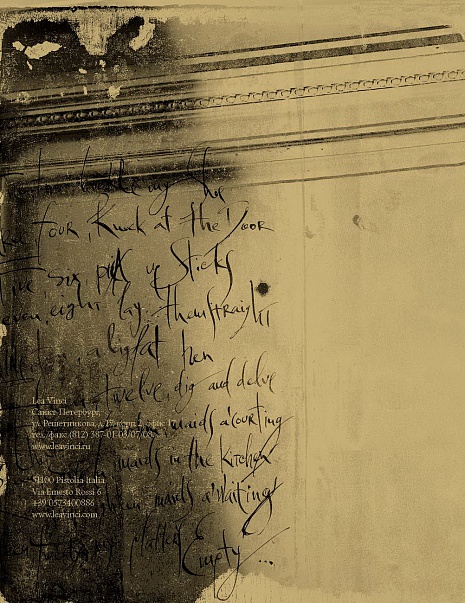 buckle my Shoe
four, Knock at the Door
Five, six pick up Sticks
seven, eight lay them straight
a big fat hen
twelve, dig and delve
maids a'courting
maids in the kitchen
maids a'waiting
platter's
Empty ...
Lea Vinci
Санкт Петербург,
ул. Решетникова,
тел./факс (812) 387-01-
www.leavinci.ru
51100 Pistolia Italia
Via Ernesto Rossi 6
+39 0573400886
www.leavinci.com